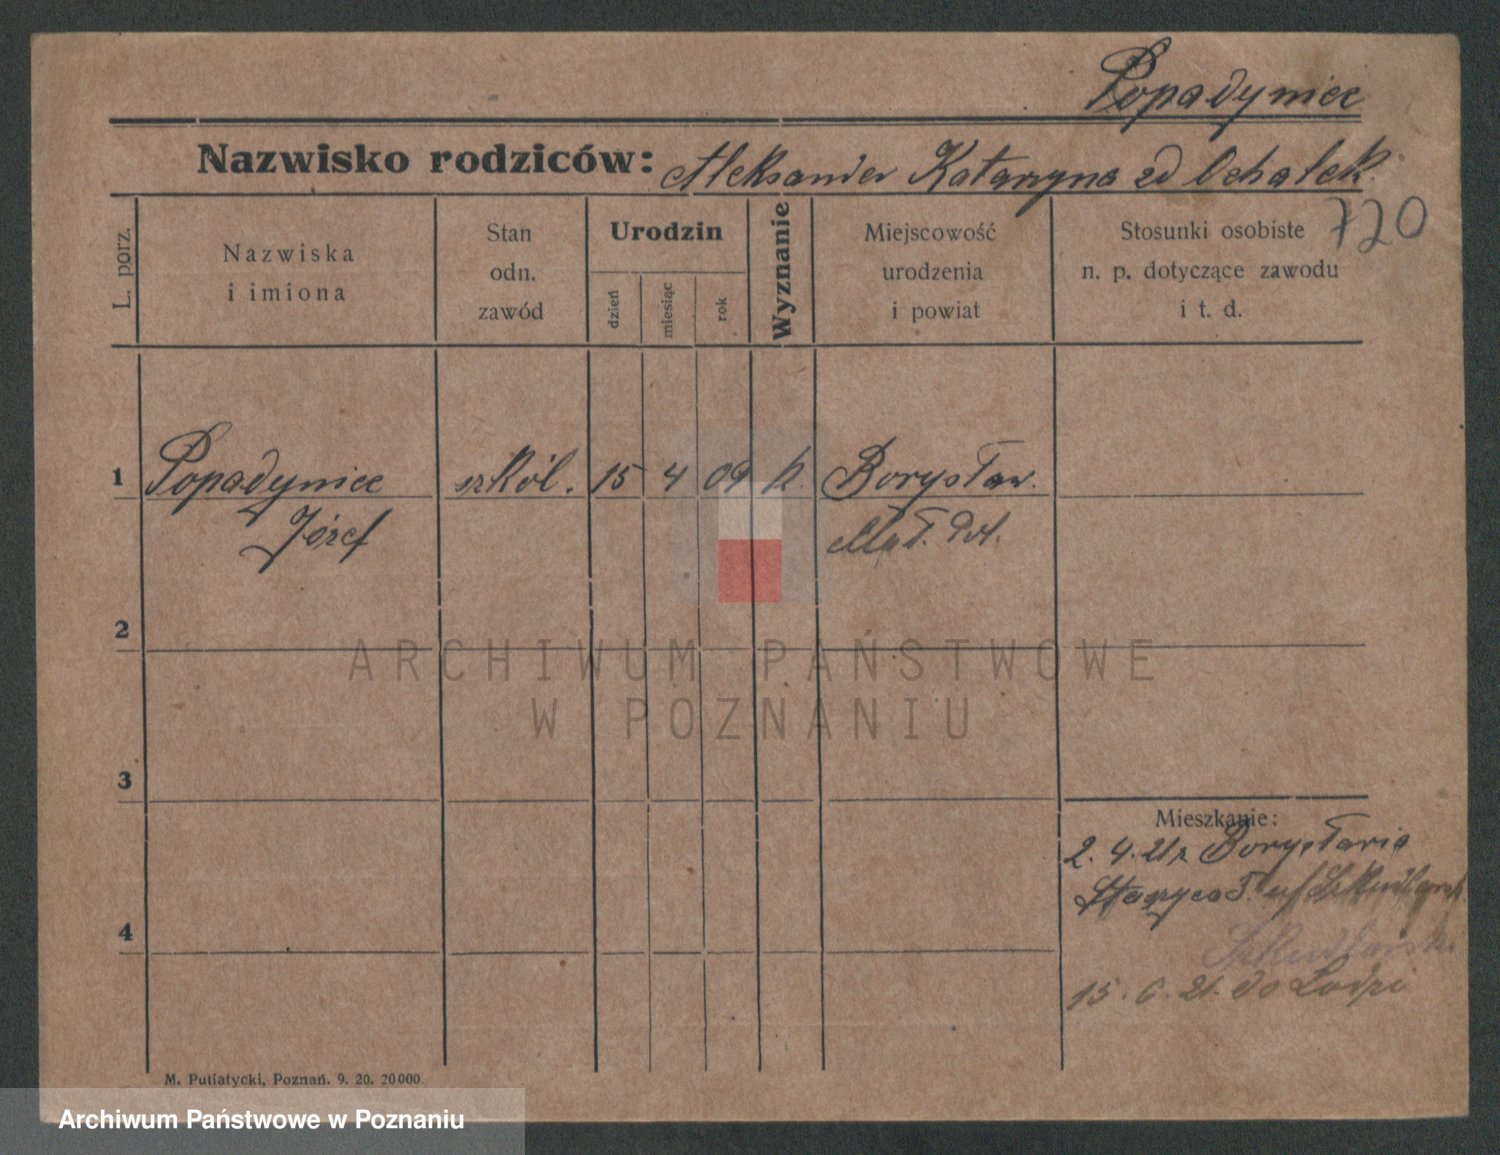 Popadyniec
Nazwisko rodziców: Aleksander Katarzyna zd Ochalek
720
L. porz.
Nazwiska
i imiona
Stan
odn.
zawód
Urodzin
dzień
miesiąc
rok
Wyznanie
Miejscowość
urodzenia
i powiat
Stosunki osobiste
n. p. dotyczące zawodu
i t. d.
1 Popadyniec szkól. 15 4 09 k. Borysław.
Józef Mał. Pol.
2
3
4
Mieszkanie:
2. 4. 21 z Borysławia
15. 6. 21. do Lodzi
M. Putiatycki, Poznań. 9. 20. 20000.
ARCHIWUM PAŃSTWOWE
W POZNANIU
Archiwum Państwowe w Poznaniu